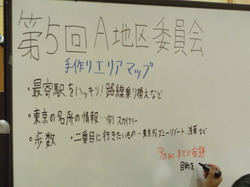 第5回A地区委員会
手作りエリアマップ
・最寄駅をハッキリ!路線乗り換えなど
・東京の名所の情報…例)スカイツリー
・歩数 ・二番目に行きたいもの…東京ディズニーリゾート 浅草など
までの宿題
目的を